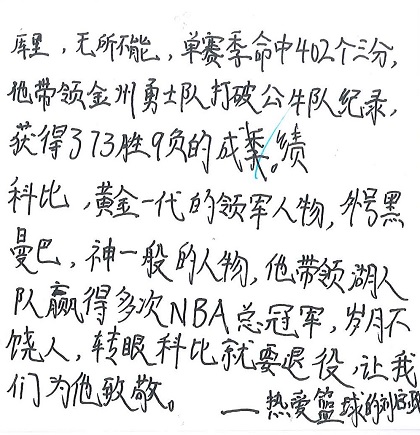 库里，无所不能，单赛季命中402个三分，
他带领金州勇士队打破公牛队纪录，
获得了73胜9负的成绩。
科比，黄金一代的领军人物，外号黑
曼巴，神一般的人物，他带领湖人
队赢得多次NBA总冠军，岁月不
饶人，转眼科比就要退役，让我
们为他致敬。
——热爱篮球的刘